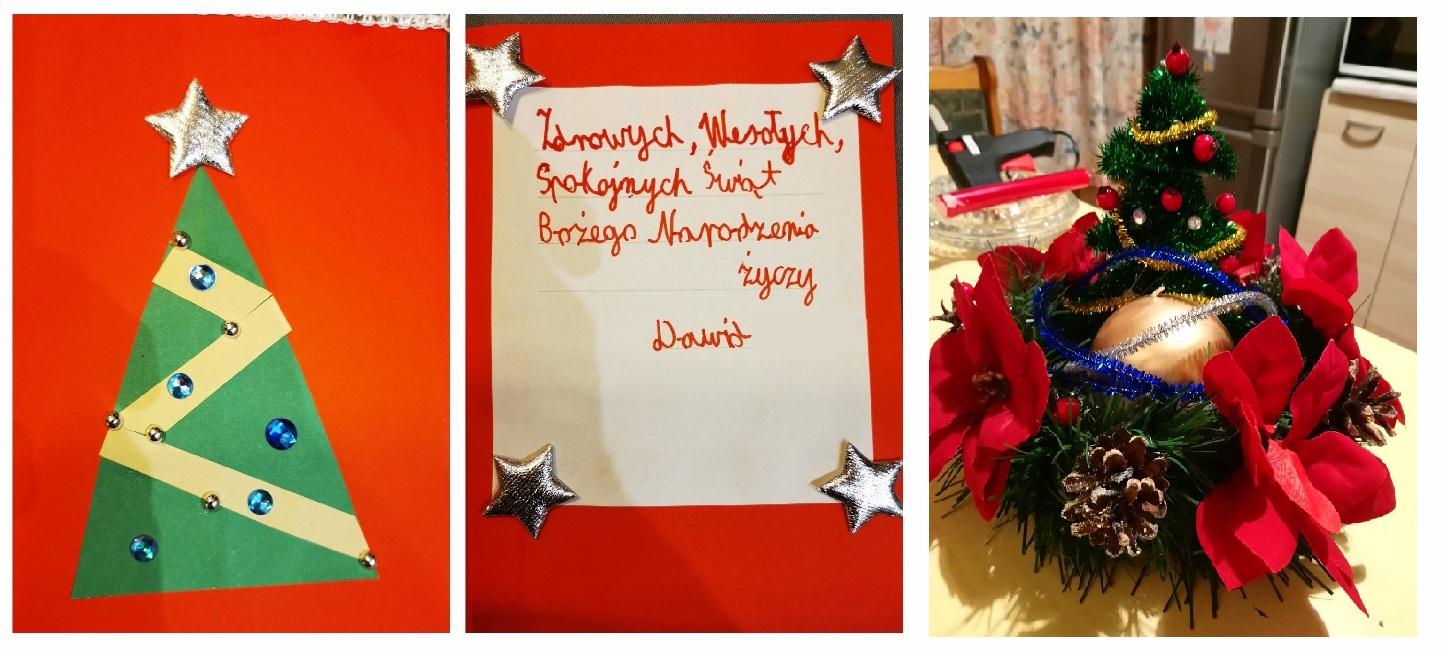 Zdrowych, Wesołych,
Spokojnych Świąt
Bożego Narodzenia
życzy
Dawid